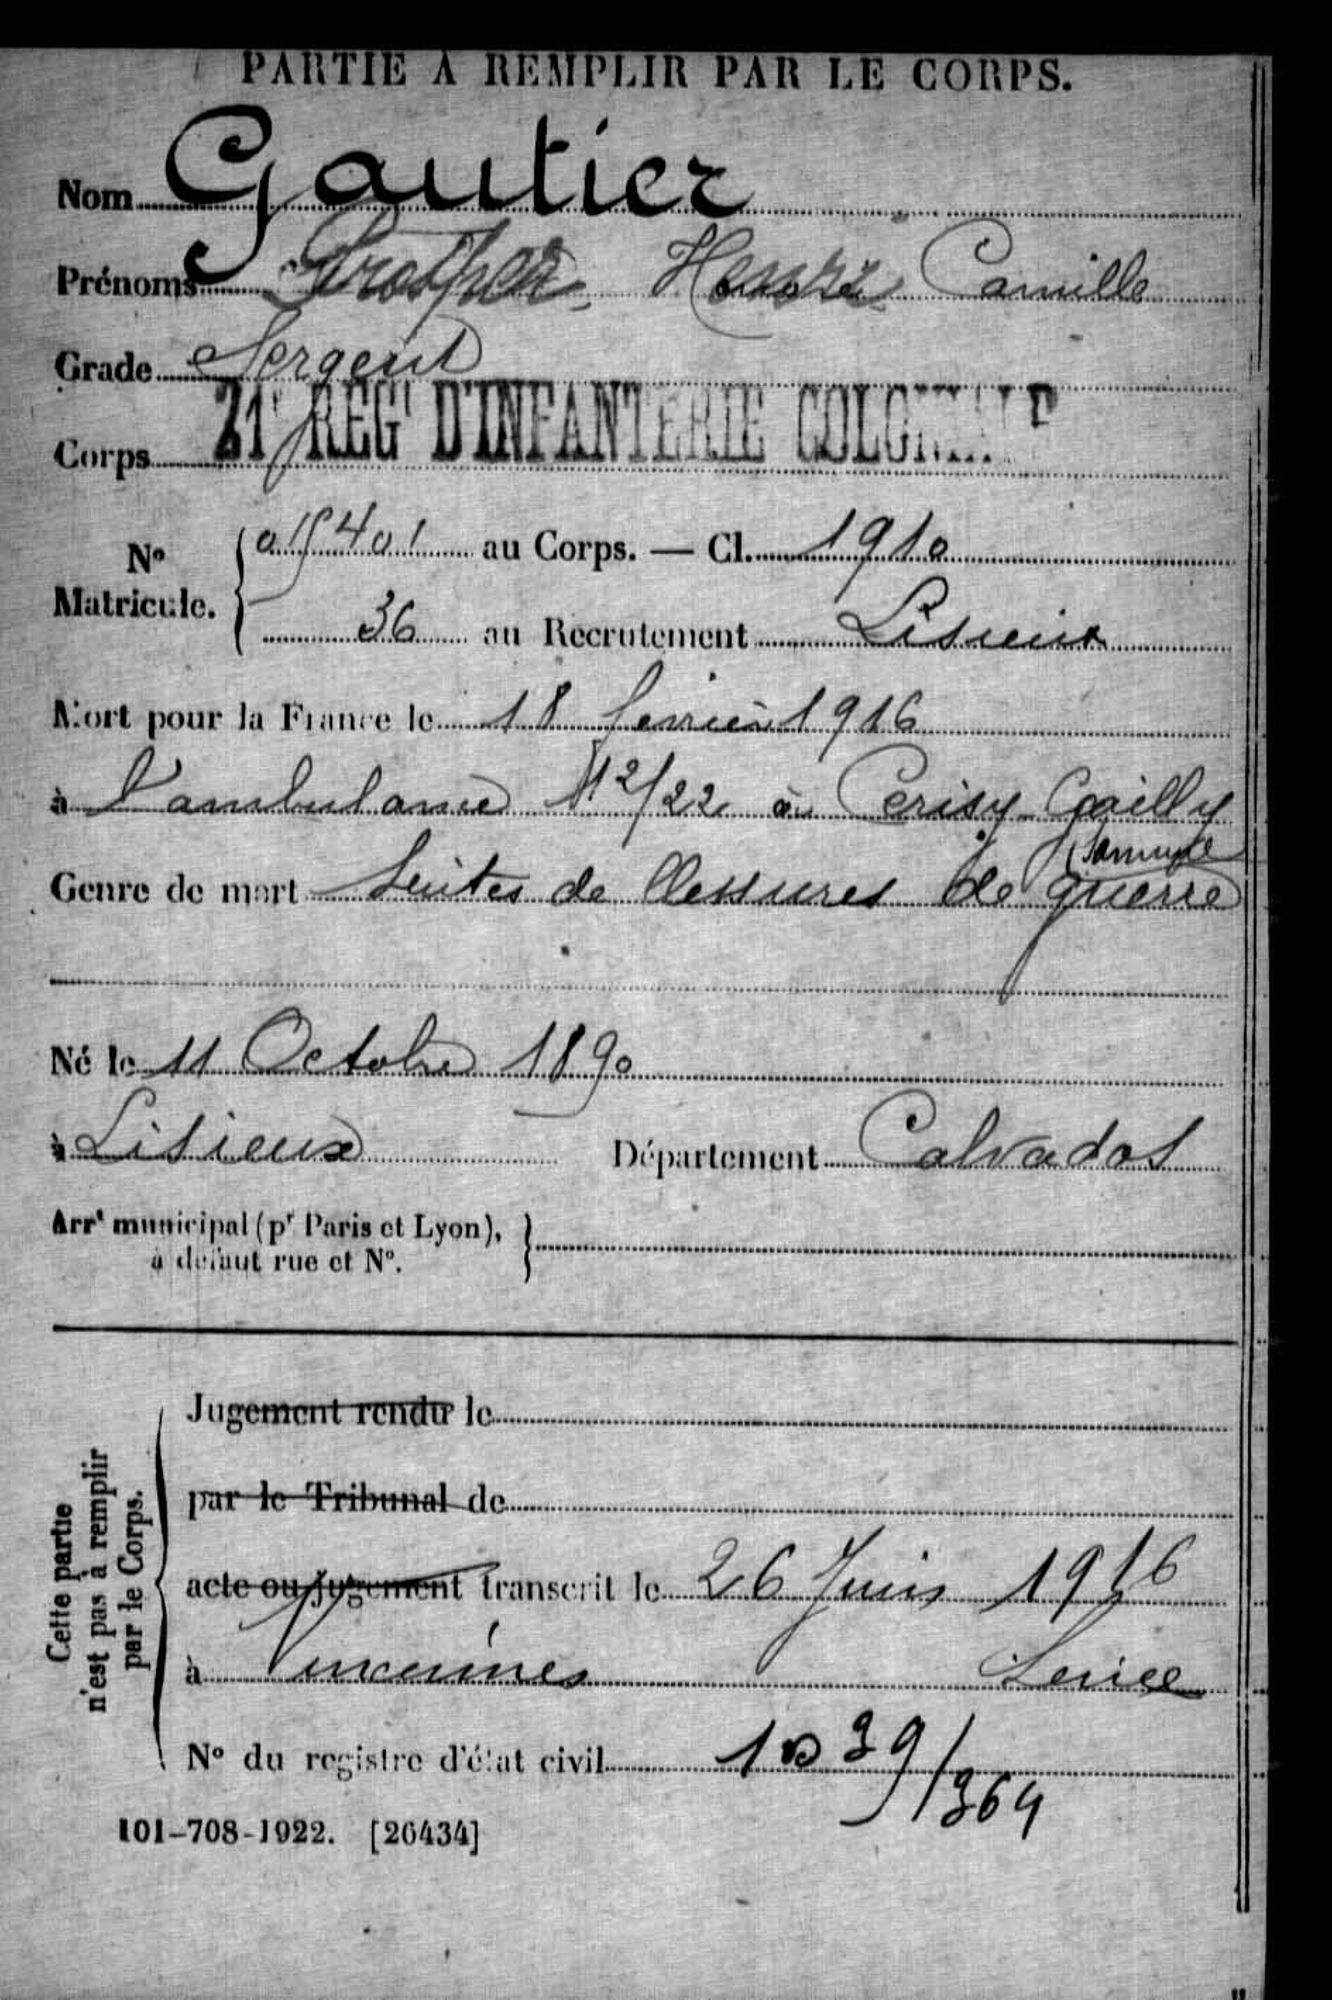 PARTIE A REMPLIR PAR LE CORPS.
Nom Gautier
Prénoms Prosper Henri Camille
Grade Sergent
Corps 21e RÉGt D'INFANTERIE COLONIALE
No Matricule. 01540 1 au Corps. — Cl. 1910
36 au Recrutement Lisieux
Mort pour la France le 18 février 1916
à l'ambulance 2/22 à Cerisy-Gailly
(Somme
Genre de mort Suites de blessures de guerre
Né le 11 Octobre 1890
à Lisieux Département Calvados
Arrt municipal (pr Paris et Lyon),
à défaut rue et No.
Cette partie
n'est pas à remplir
par le Corps.
Jugement rendu le
par le Tribunal de
acte ou jugement transcrit le 26 Juin 1916
à Vincennes Seine
No du registre d'état civil 39/364
101-708-1922. [26434]